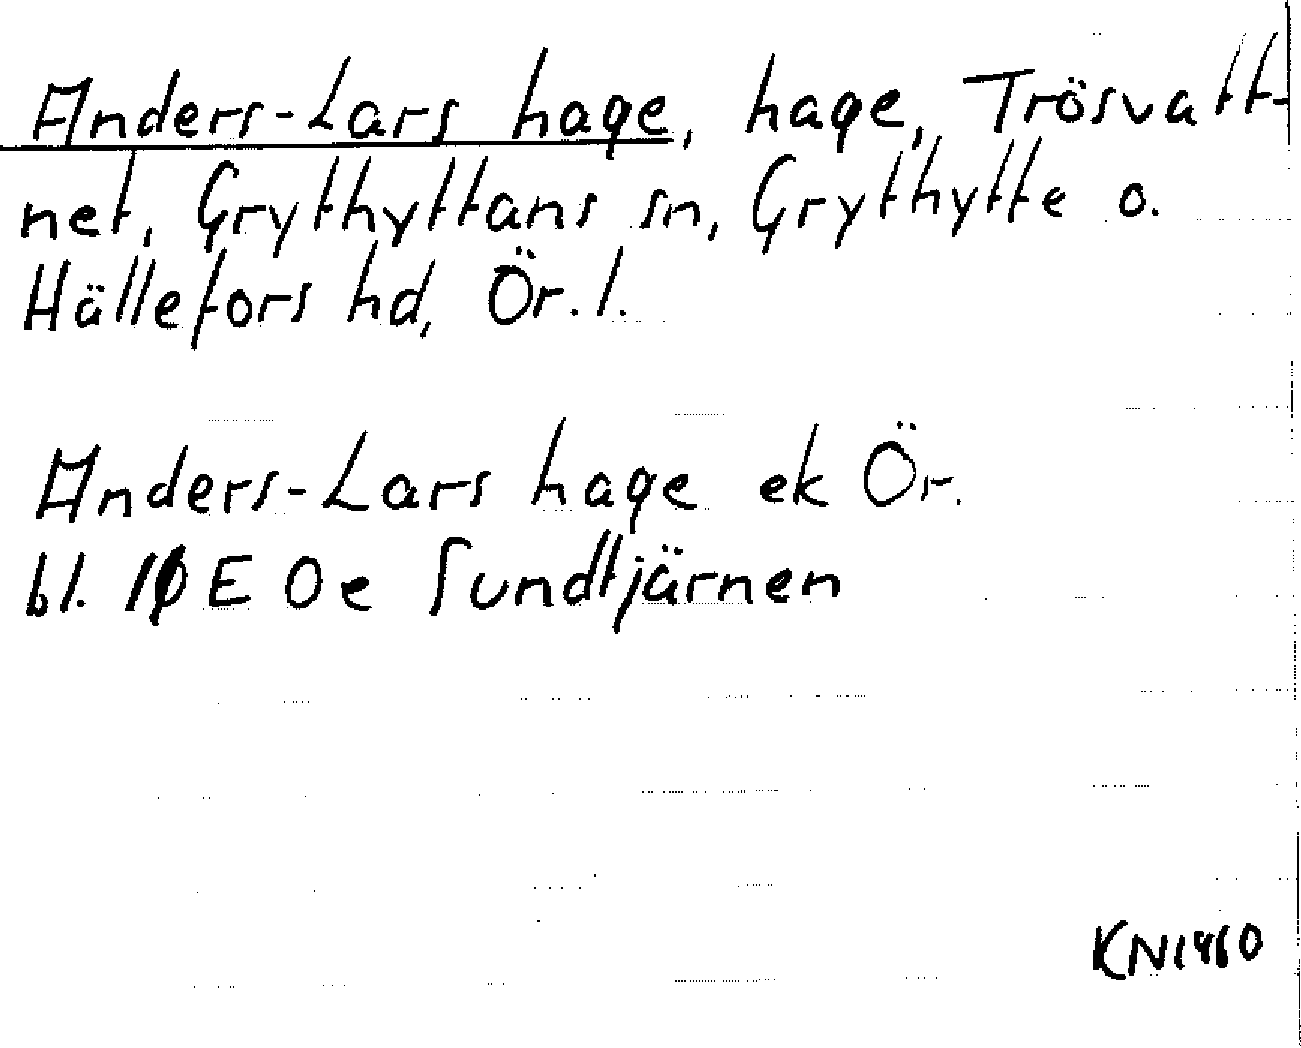 Anders-Lars hage, hage, Trösvatt-
net, Grythyttans sn, Grythytte o.
Hällefors hd, Ör. l.
Anders-Lars hage ek Ör.
bl. 10 E Oe Sundtjärnen